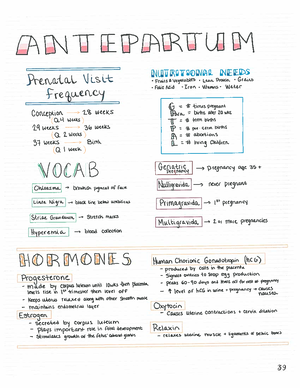 ANTEPARTUM
Prenatal Visit
Frequency
Conception → 28 weeks
Q 4 weeks
29 weeks → 36 weeks
Q 2 weeks
37 weeks → Birth
Q 1 week
NUTRITIONAL NEEDS
• Fruits & Vegetables • Lean Protein • Grains
• Folic Acid • Iron • Vitamins • Water
G = # times pregnant
P = births after 20 wks
T = # term births
P = # pre term births
A = # abortions
L = # living children
VOCAB
Chloasma → brownish pigment of face
Linea Nigra → dark line below umbilicus
Striae Gravidarum → Stretch marks
Hyperemia → blood collection
Geriatric pregnancy → Pregnancy age 35+
Nulligravida → never pregnant
Primagravida → 1st pregnancy
Multigravida → 2 or more pregnancies
HORMONES
Progesterone
- made by corpus luteum until 10wks then placenta
levels rise in 1st trimester then level off
- Keeps uterus relaxed along with other smooth muscle
- maintains endometrial layer
Estrogen
- Secreted by corpus luteum
- Plays important role in fetal development
- Stimulates growth of the fetus' adrenal glands
Human Chorionic Gonadotropin (hCG)
- produced by cells in the placenta
- Signals ovaries to stop egg production
- Peaks 60-90 days and then falls off rest of pregnancy
- ↑ level of hCG in urine = pregnancy → causes nausea
Oxytocin
- Causes uterine contractions + cervix dilation
Relaxin
- relaxes uterine muscle + ligaments of pelvic bones
39